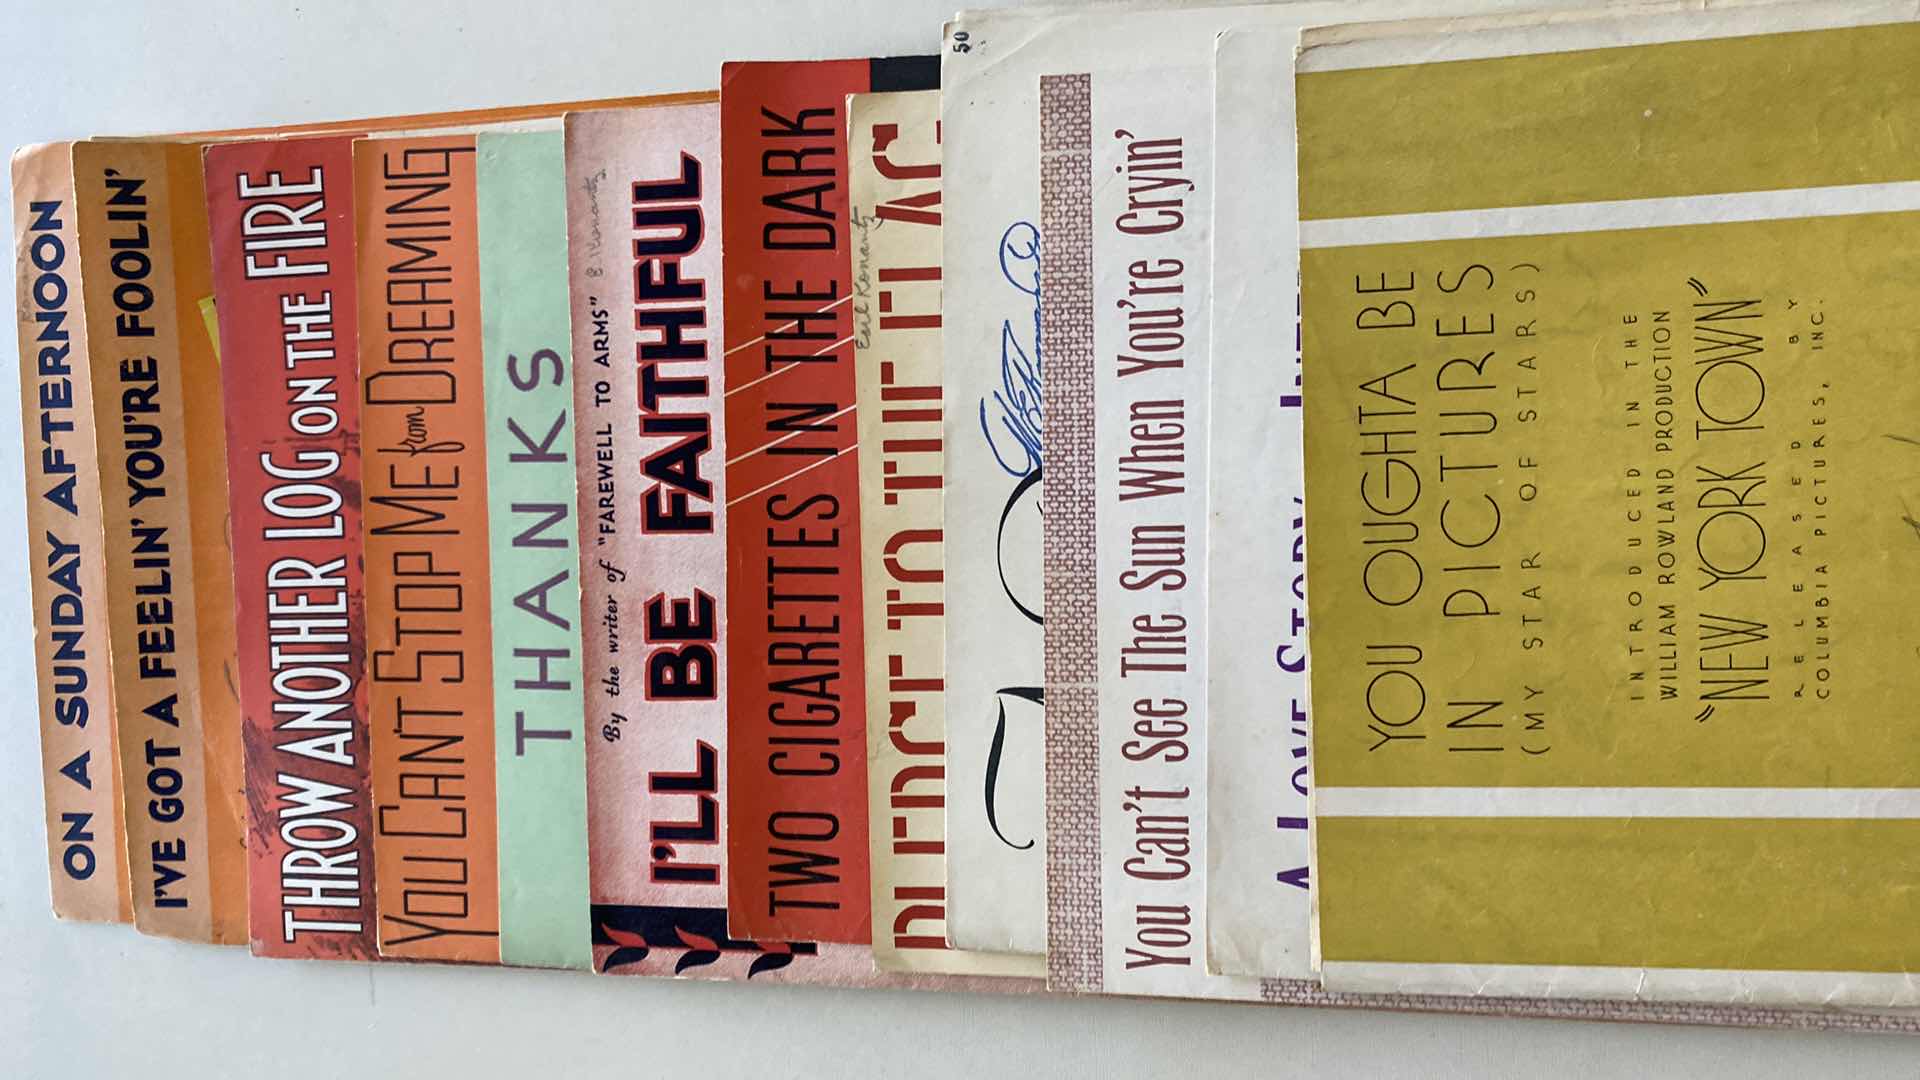 ON A SUNDAY AFTERNOON
I'VE GOT A FEELIN' YOU'RE FOOLIN'
THROW ANOTHER LOG ON THE FIRE
YOU CAN'T STOP ME from DREAMING
THANKS
By the writer of "FAREWELL TO ARMS"
I'LL BE FAITHFUL
TWO CIGARETTES IN THE DARK
PLEDGE TO THE FLAG
50
You Can't See The Sun When You're Cryin'
A LOVE STORY
YOU OUGHTA BE
IN PICTURES
(MY STAR OF STARS)
INTRODUCED IN THE
WILLIAM ROWLAND PRODUCTION
"NEW YORK TOWN"
RELEASED BY
COLUMBIA PICTURES, INC.